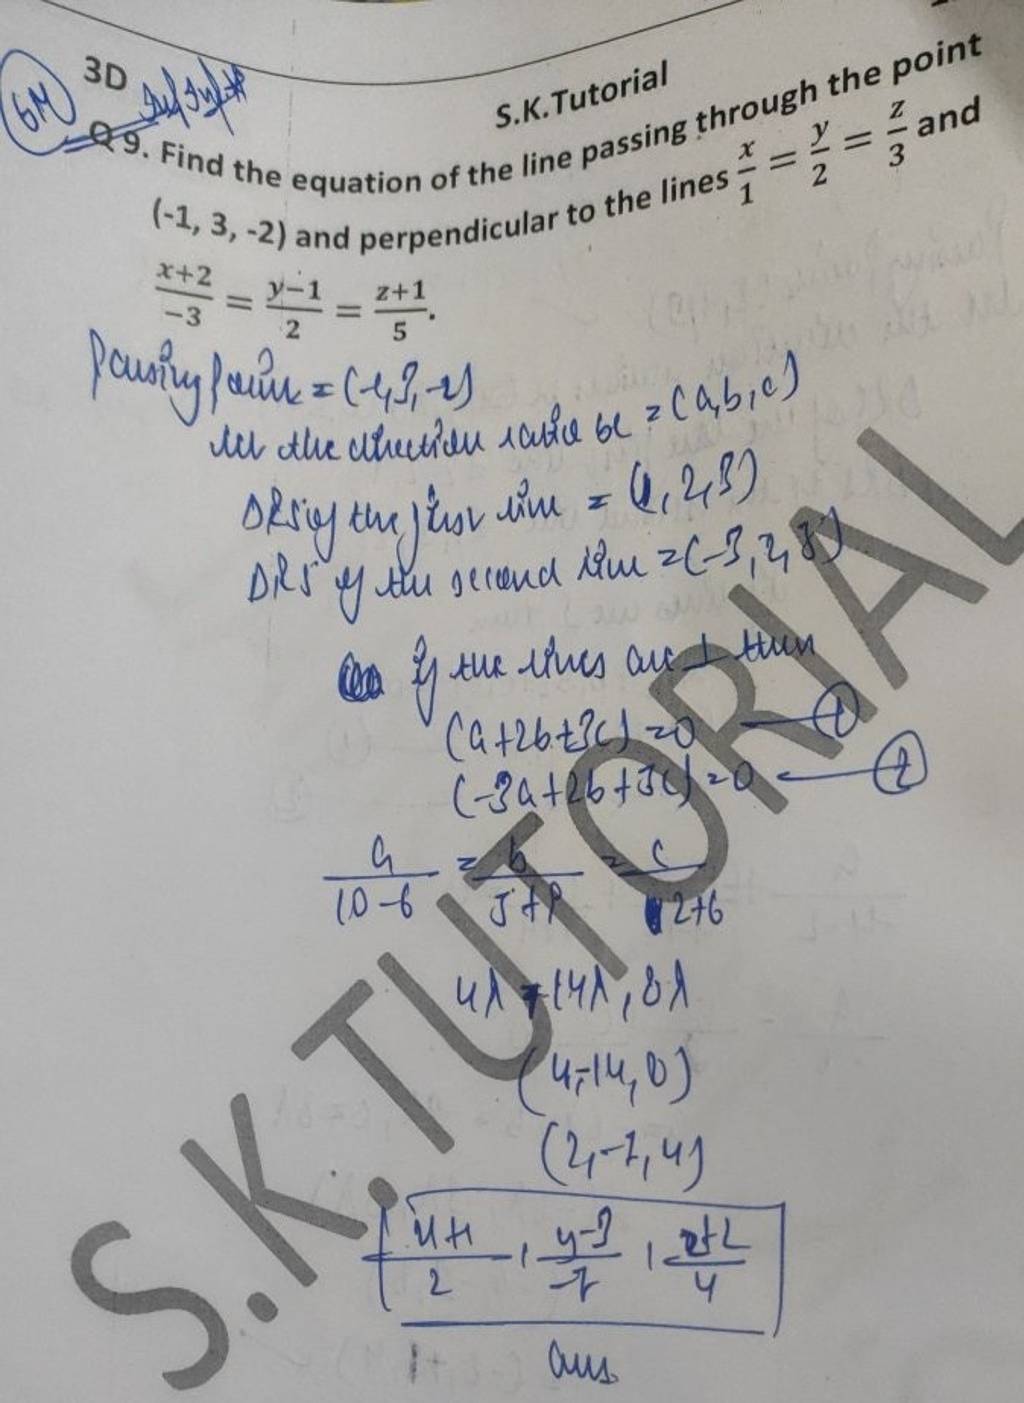 6M
3D
S.K.Tutorial
Q 9. Find the equation of the line passing through the point
(-1, 3, -2) and perpendicular to the lines x/1 = y/2 = z/3 and
x+2/-3 = y-1/2 = z+1/5.
Passing Point = (-1,3,-2)
let the direction ratio be = (a,b,c)
DRS of the first line = (1,2,3)
DRS of the second line = (-3,2,5)
if the lines are ⊥ then
(a+2b+3c)=0 — 1
(-3a+2b+5c)=0 — 2
a/10-6 = b/5+9 = c/2+6
4λ, -14λ, 8λ
(4,-14,8)
(2,-7,4)
x+1/2 , y-3/-7 , z+2/4
ans
S.K.TUTORIAL